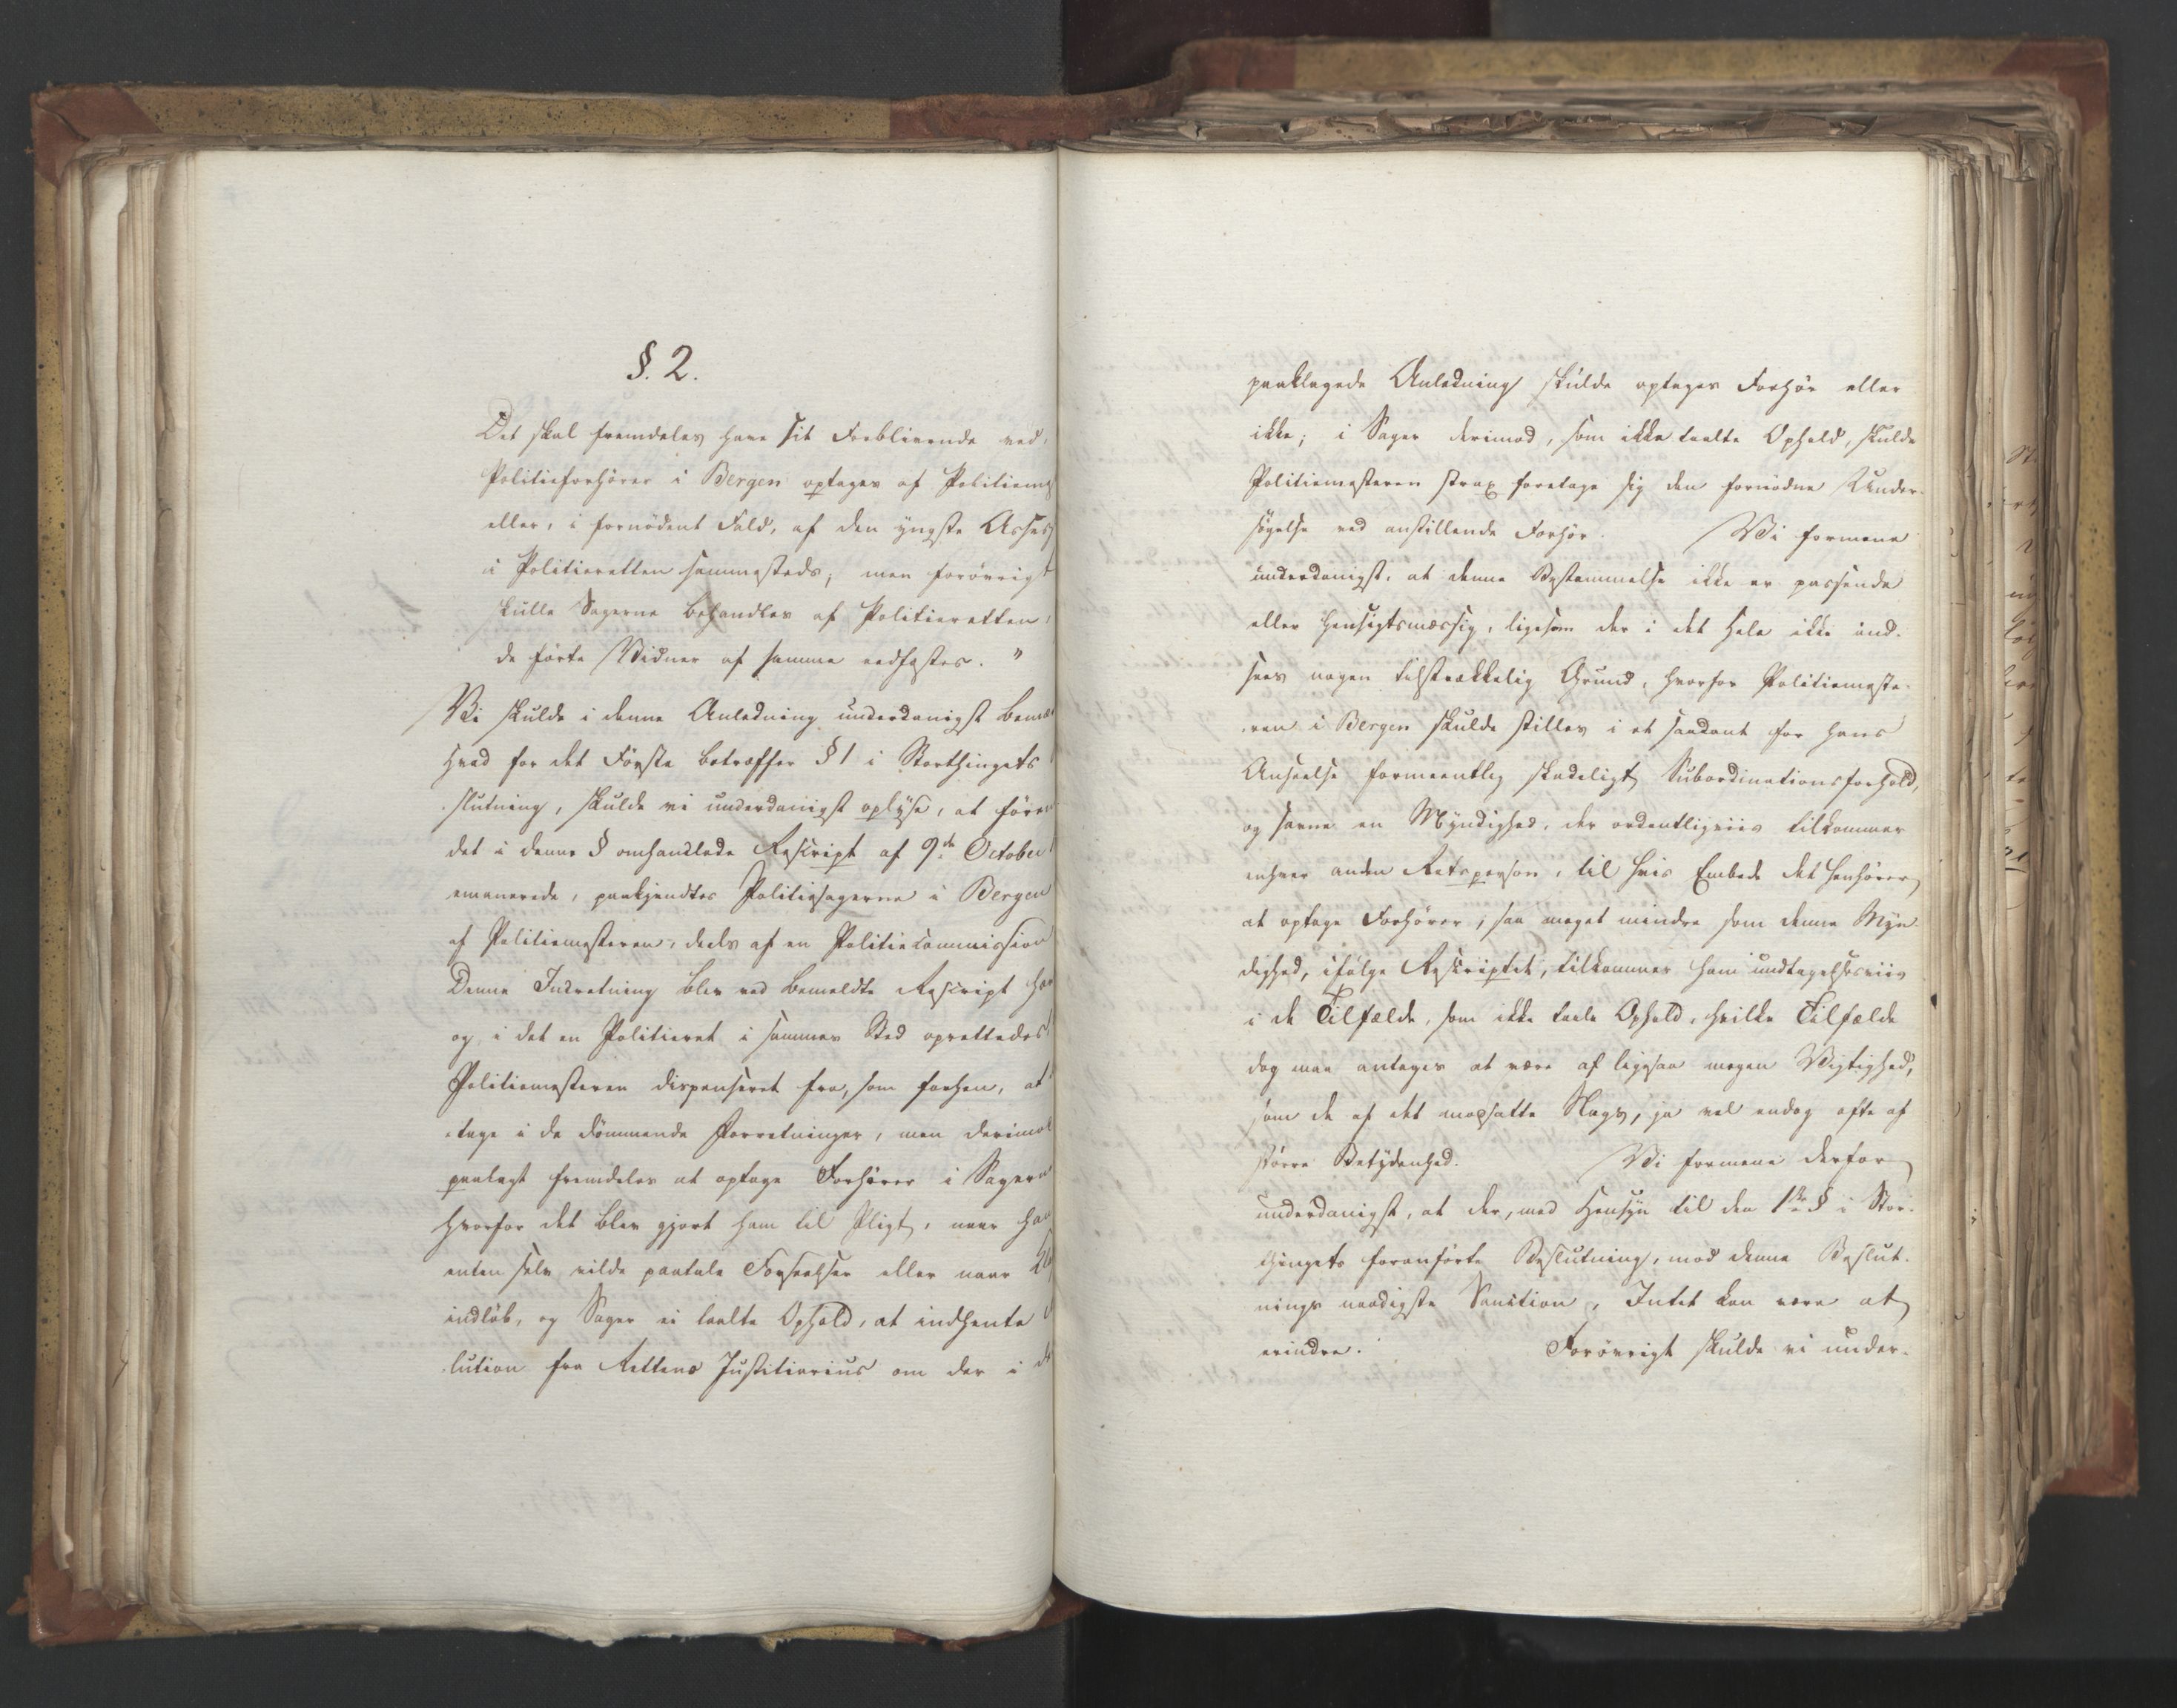 §. 2.
Det skal fremdeles have sit Forblivende ved,
Politieforhører i Bergen optages af Politiem
eller, i fornödent Fald, af den yngste Assess
i Politieretten sammesteds; men forövrigt
skulle Sagerne behandles af Politieretten,
de förte Vidner af samme edfæstes. "
Vi skulde i denne Anledning underdanigst bemæ
Hvad for det Förste betræffer § 1 i Storthingets
slutning, skulde vi underdanigst oplyse, at fören
det i denne § omhandlede Rescript af 9de October
emanerede, paakjendtes Politiesagerne i Bergen
af Politiemesteren, deels af en Politiecommission
Denne Indretning blev ved bemeldte Rescript hæ
og, i det en Politieret i sammes Sted oprettedes
Politiemesteren dispenseret fra, som forhen, at
tage i de dömmende Forretninger, men derimod
paalagt fremdeles at optage Forhörer i Sagern
hvorfor det blev gjort ham til Pligt, naar han
enten selv vilde paatale Forseelser eller naar Kla
indlöb, og Sagen ei taalte Ophold, at indhente
lution fra Rettens Justitiarius om der i d
paaklagede Anledning skulde optages Forhör eller
ikke; i Sager derimod, som ikke taalte Ophold, skulde
Politiemesteren strax foretage sig den fornödne Under-
sögelse ved anstillende Forhör. Vi formene
underdanigst, at denne Bestemmelse ikke er passende
eller hensigtsmæssig, ligesom der i det Hele ikke ind-
sees nogen tilstrækkelig Grund, hvorfor Politiemeste-
ren i Bergen skulde stilles i et saadant for hans
Anseelse formeentlig skadeligt Subordinationsforhold,
og savne en Myndighed, der ordentligviis tilkommer
enhver anden Retsperson, til hvis Embede det henhörer
at optage Forhörer, saa meget mindre som denne Myn-
dighed, ifölge Rescriptet, tilkommer ham undtagelsesviis
i de Tilfælde, som ikke taale Ophold, hvilke Tilfælde
dog maa antages at være af ligesaa megen Vigtighed,
som de af det modsatte Slags, ja vel endog ofte af
större Betydenhed. Vi formene derfor
underdanigst, at der, med Hensyn til den 1ste § i Stor-
thingets foranförte Beslutning, mod denne Beslut-
nings naadigste Sanction, Intet kan være at
erindre. Forövrigt skulde vi under-